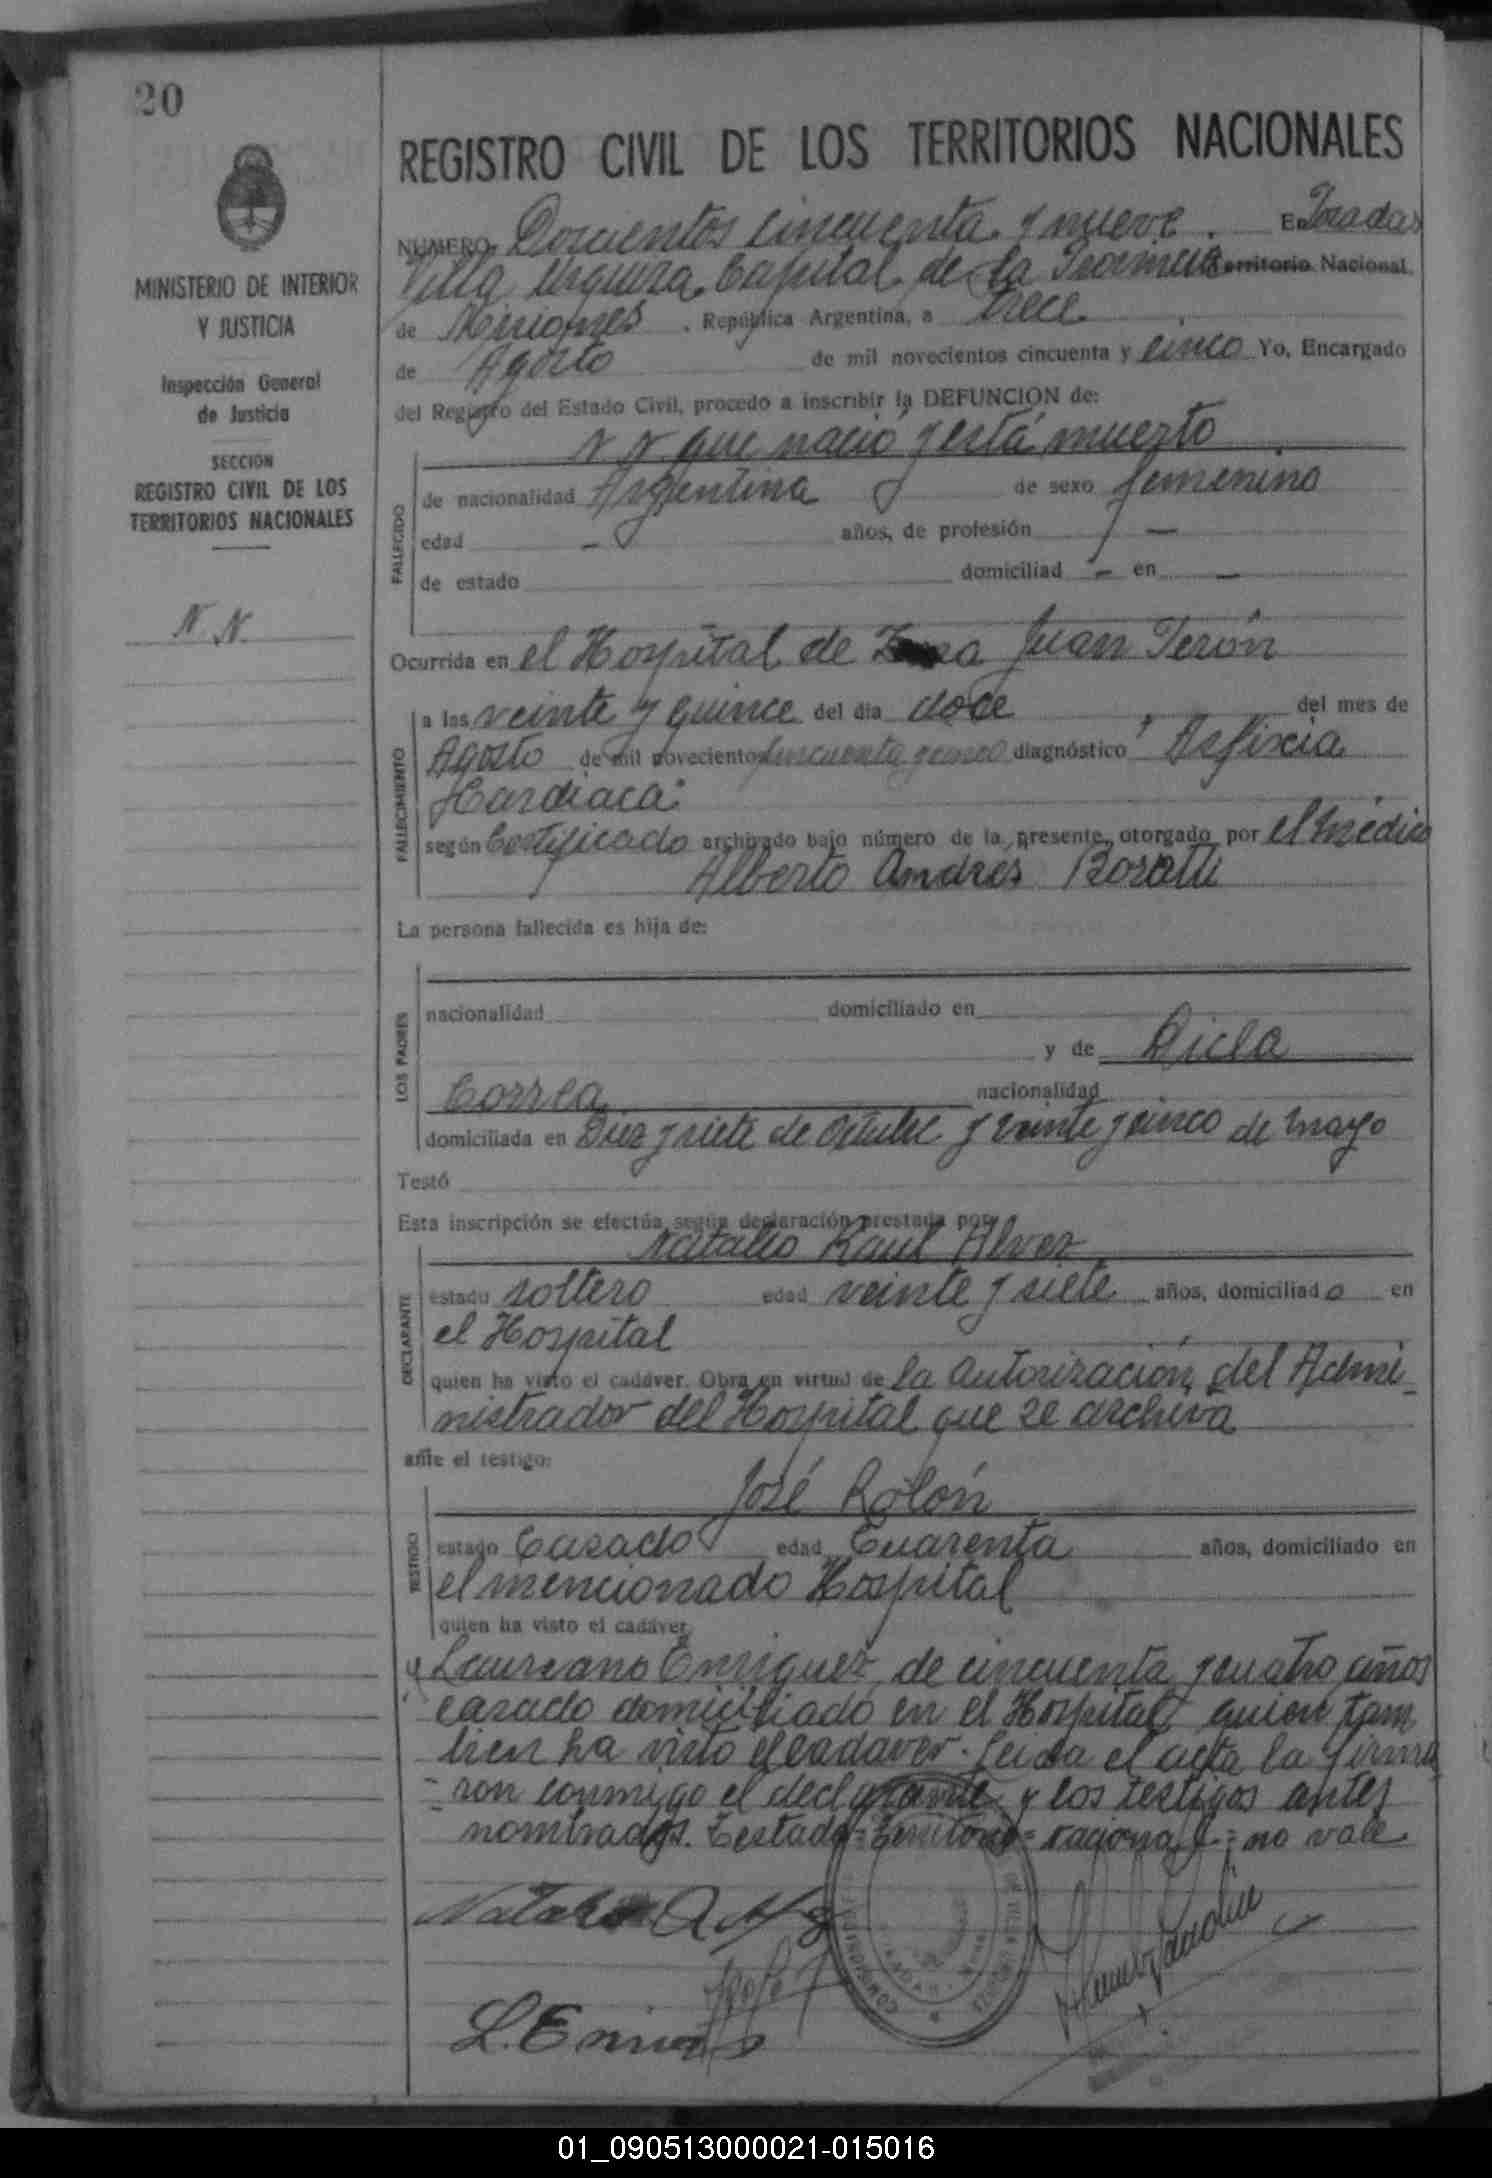 20
REGISTRO CIVIL DE LOS TERRITORIOS NACIONALES
MINISTERIO DE INTERIOR
Y JUSTICIA
Inspección General
de Justicia
SECCION
REGISTRO CIVIL DE LOS
TERRITORIOS NACIONALES
N. N.
NUMERO Doscientos cincuenta y nueve. En Posadas
Villa Urquiza, Capital de la Provincia Territorio Nacional
de Misiones, República Argentina, a trece
de Agosto de mil novecientos cincuenta y cinco Yo, Encargado
del Registro del Estado Civil, procedo a inscribir la DEFUNCION de:
FALLECIDO
N N que nació y está muerto
de nacionalidad Argentina de sexo femenino
edad — años, de profesión —
de estado domiciliad — en —
Ocurrida en el Hospital de Juan Perón
FALLECIMIENTO
a las veinte y quince del día doce del mes de
Agosto de mil novecientos cincuenta y cinco diagnóstico "Asfixia
Cardiaca"
según Certificado archivado bajo número de la presente, otorgado por el médico
Alberto Andres Boratti
La persona fallecida es hija de:
LOS PADRES
nacionalidad domiciliado en
y de Dicla
Correa nacionalidad
domiciliada en Diez y siete de Octubre y veinte y cinco de mayo
Testó
Esta inscripción se efectúa según declaración prestada por
DECLARANTE
Natalio Raul Alvez
estado soltero edad veinte y siete años, domiciliado en
el Hospital
quien ha visto el cadáver. Obra en virtud de la autorización del Admi-
nistrador del Hospital que se archiva
ante el testigo:
TESTIGO
José Rolón
estado Casado edad Cuarenta años, domiciliado en
el mencionado Hospital
quien ha visto el cadáver
y Laureano Enriquez, de cincuenta y cuatro años
casado domiciliado en el Hospital quien tam
bien ha visto el cadaver. Leida el acta la firma
ron conmigo el declarante y los testigos antes
nombrados. Testado = Territorio = nacional = no vale
L. Enriq
01_090513000021-015016